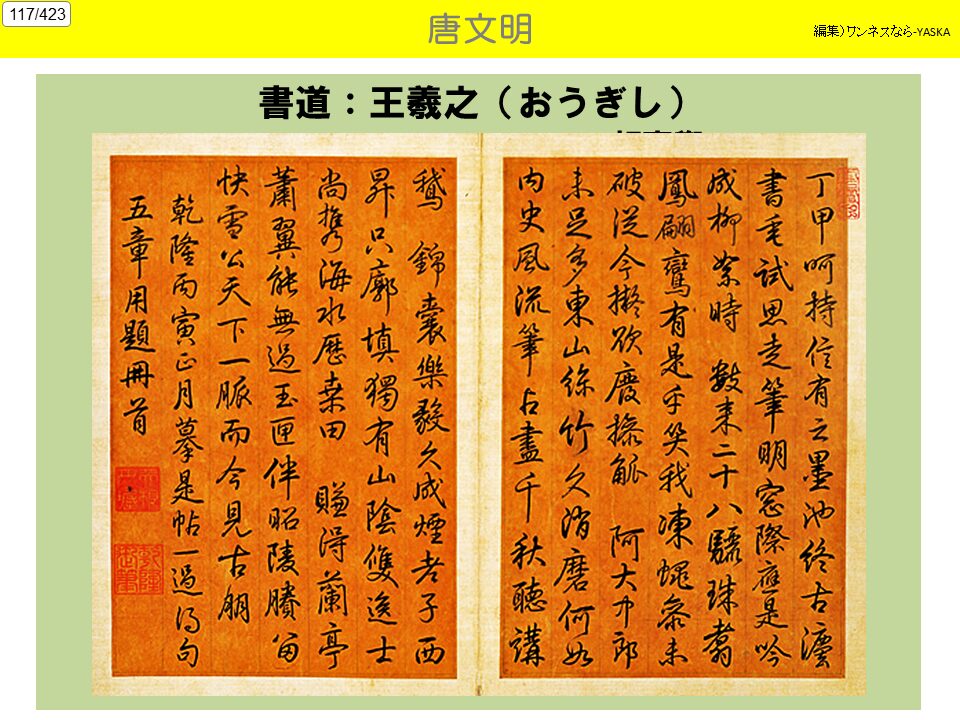 117/423
唐文明
編集)ワンネスなら-YASKA
書道：王羲之（おうぎし）
丁甲呵持信有之墨池終古
書試思走筆明窓際應是吟
成柳絮時 數来二十八驪珠翥
鳳翾鸞有是乎笑我凍蠅參未
破從今擬欲廢操觚 阿大中郎
未足多東山絲竹久消磨何如
内史風流筆占盡千秋聽講
鵞 錦囊樂毅久成煙老子西
昇只廓填獨有山陰雙逸士
尚携海水歷桑田 賺得蘭亭
蕭翼能無過玉匣伴昭陵賸留
快雪公天下一脈而今見古朋
乾隆丙寅正月摹是帖一過得句
五章用題冊首